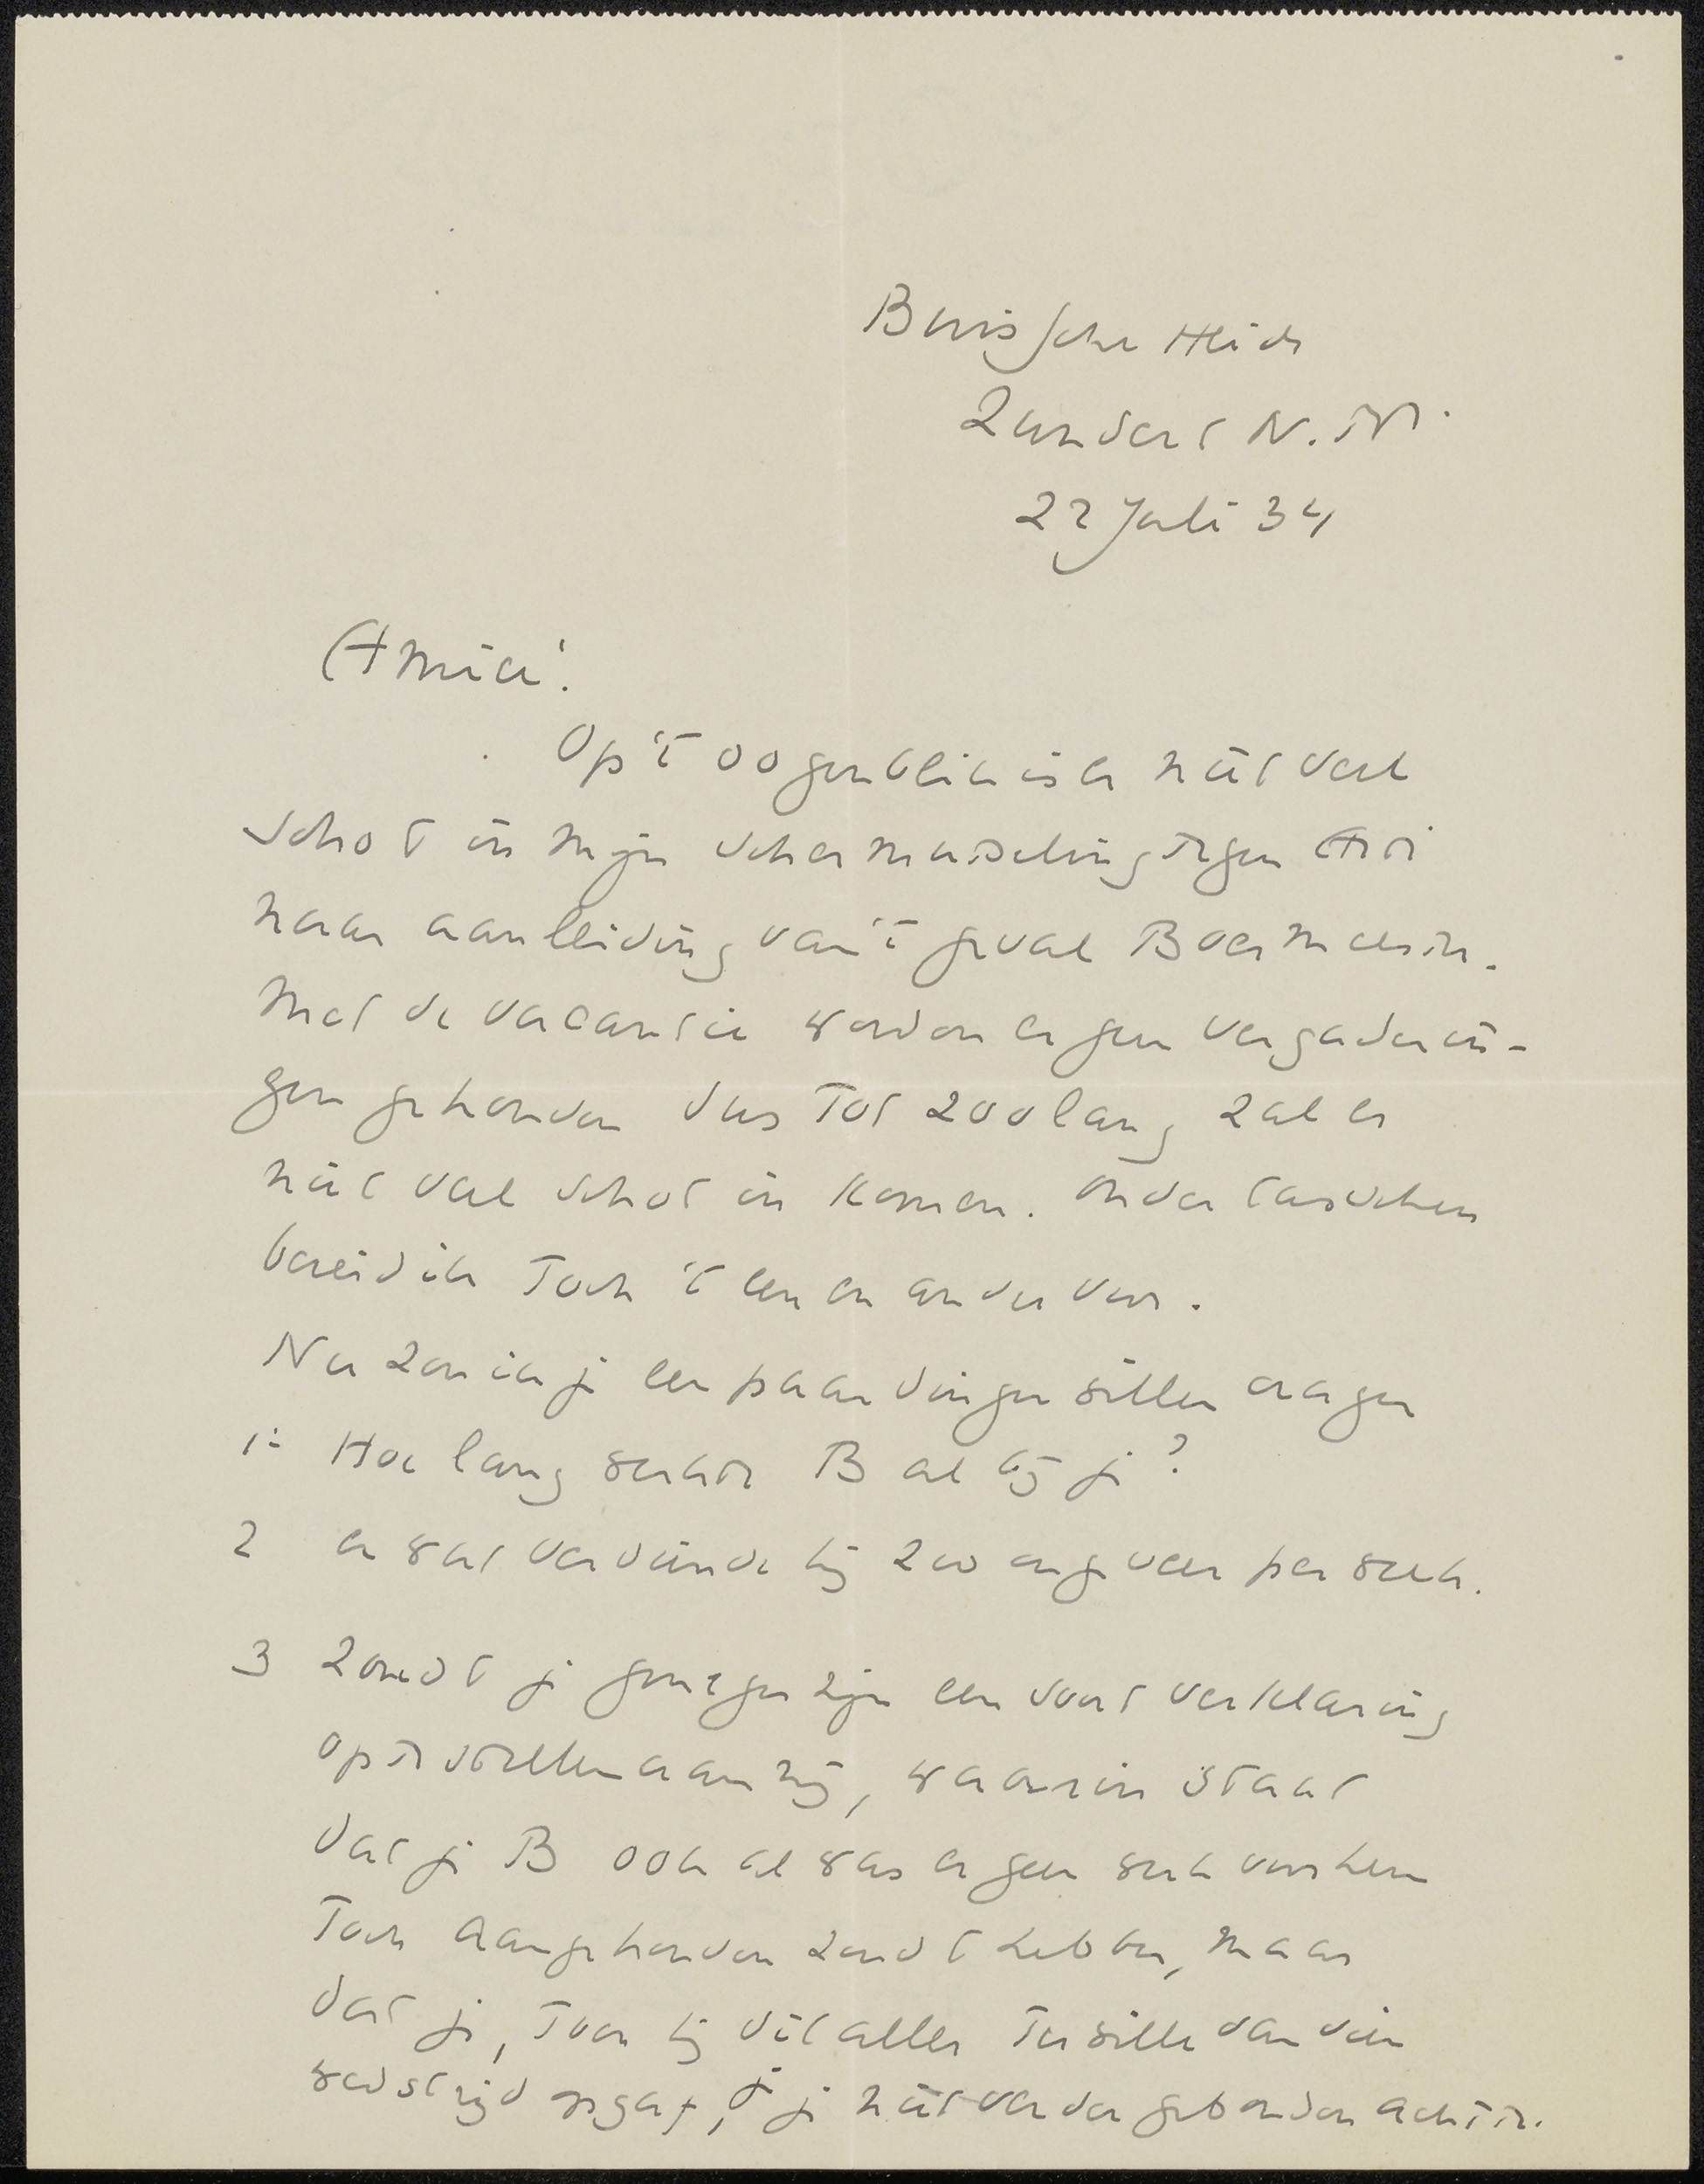 Buissche Heide
Zundert N. Br.
22 Juli 34
Amice!
Op 't oogenblik is er niet veel
schot in mijn schermutseling tegen Arti
naar aanleiding van 't geval Boermeester.
Met de vacantie worden er geen vergaderin-
gen gehouden dus tot zoolang zal er
niet veel schot in komen. Ondertusschen
bereid ik toch 't een en ander voor.
Nu zou ik je een paar dingen willen vragen
1e Hoe lang werkte B al bij je?
2 en wat verdiende hij zoo ongeveer per week.
3 Zoudt je genegen zijn een soort verklaring
op te stellen aan mij, waarin staat
dat je B ook al was er geen werk voor hem
toch aangehouden zoudt hebben, maar
dat je, toen hij dit alles ter wille van dien
wedstrijd opgaf, je je niet verder gebonden achtte.